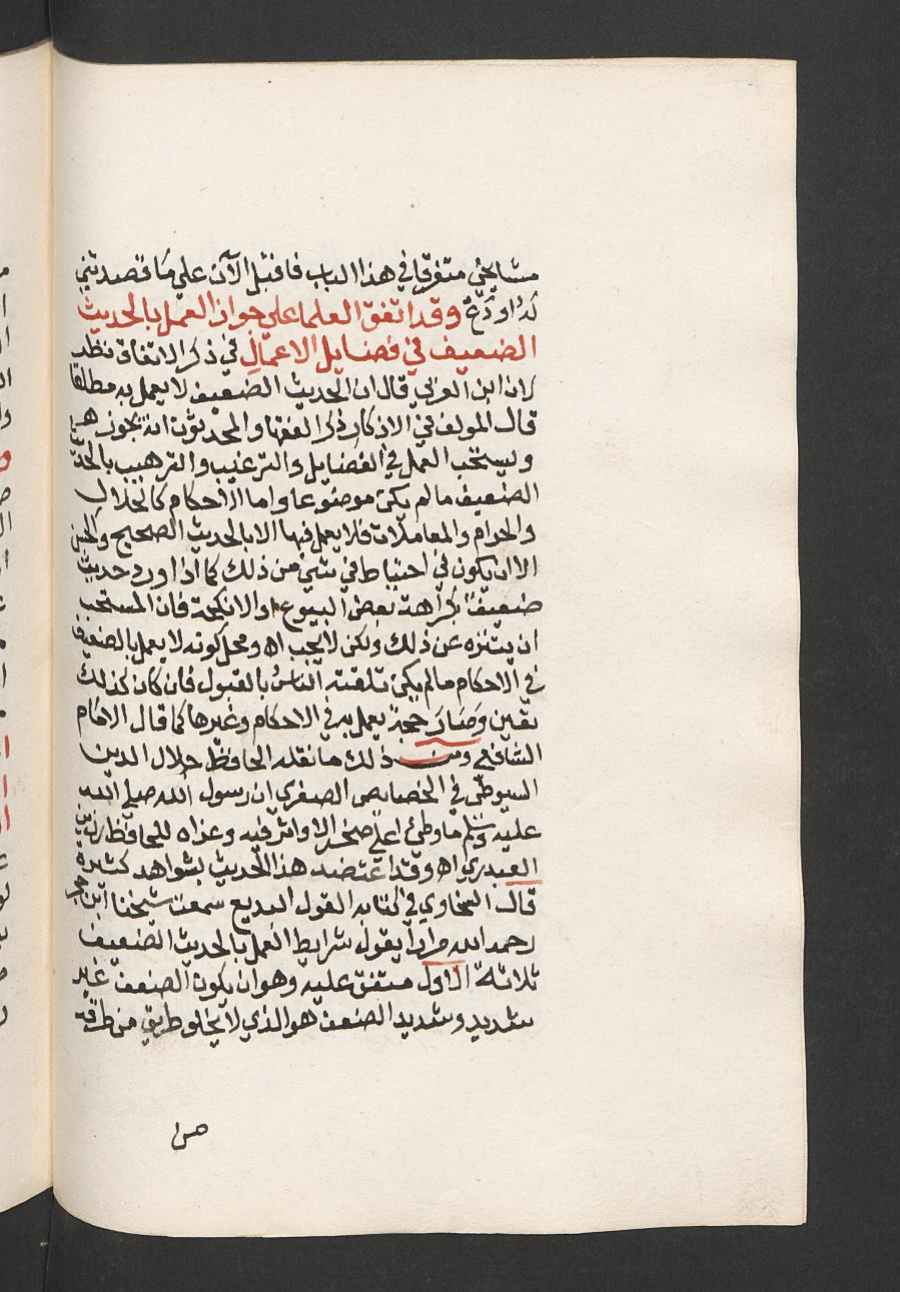 مشايخي متفرقا في هذا الباب فاقبل الآن علي ما قصدتني
له اودع وقد اتفق العلما علي جواز العمل بالحديث
الضعيف في فضايل الاعمال في ذكر الاتفاق نظر
لان ابن العربي قال ان الحديث الضعيف لا يعمل به مطلقا
قال المولف في الاذكار ذكر الفقها والمحدثون انه يجوز
ويستحب العمل في الفضايل والترغيب والترهيب بالحديث
الضعيف ما لم يكن موضوعا واما الاحكام كالحلال
والحرام والمعاملات فلا يعمل فيها الا بالحديث الصحيح والحسن
الا ان يكون في احتياط في شي من ذلك كما اذا ورد حديث
ضعيف بكراهة بعض البيوع او الانكحة فان المستحب
ان يتنزه عن ذلك ولكن لا يجب اه ومحل كونه لا يعمل بالضعيف
في الاحكام ما لم يكن تلقته الناس بالقبول فان كان كذلك
تعين وصار حجة يعمل به في الاحكام وغيرها كما قال الامام
الشافعي ومن ذلك ما نقله الحافظ جلال الدين
السيوطي في الخصايص الصغري ان رسول الله صلي الله
عليه وسلم ما وطئ علي صخر الا واثر فيه وعزاه للحافظ رزين
العبدري اه وقد اعتضد هذا الحديث بشواهد كثيرة
قال السخاوي في كتابه القول البديع سمعت شيخنا ابن حجر
رحمه الله مرارا يقول شرايط العمل بالحديث الضعيف
ثلاثة الاول متفق عليه وهو ان يكون الضعف غير
شديد وشديد الضعف هو الذي لا يخلو طريق من طرقه
من